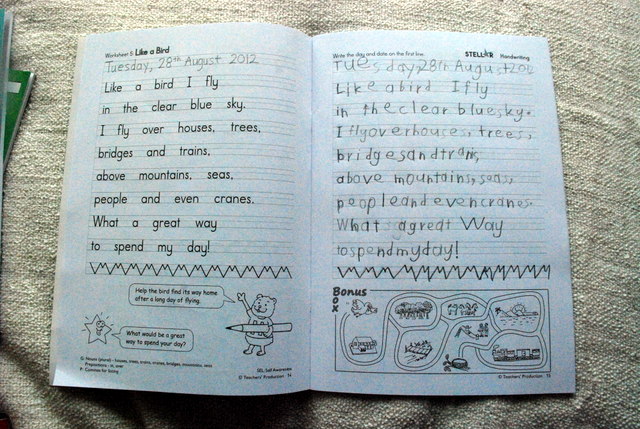 Worksheet 5: Like a Bird
Tuesday, 28th August 2012
Like a bird I fly
in the clear blue sky.
I fly over houses, trees,
bridges and trains,
above mountains, seas,
people and even cranes.
What a great way
to spend my day!
Help the bird find its way home
after a long day of flying.
What would be a great
way to spend your day?
G: Nouns (plural) - houses, trees, trains, cranes, bridges, mountains, seas
Prepositions - in, over
P: Commas for listing
SEL: Self Awareness
© Teachers' Production 14
Write the day and date on the first line.
STELLAR Handwriting
Tuesday, 28th August 2012
Like a bird I fly
in the clear blue sky.
I fly over houses, trees,
bridges and trains,
above mountains, seas,
people and even cranes.
What a great way
to spend my day!
Bonus
BOX
© Teachers' Production